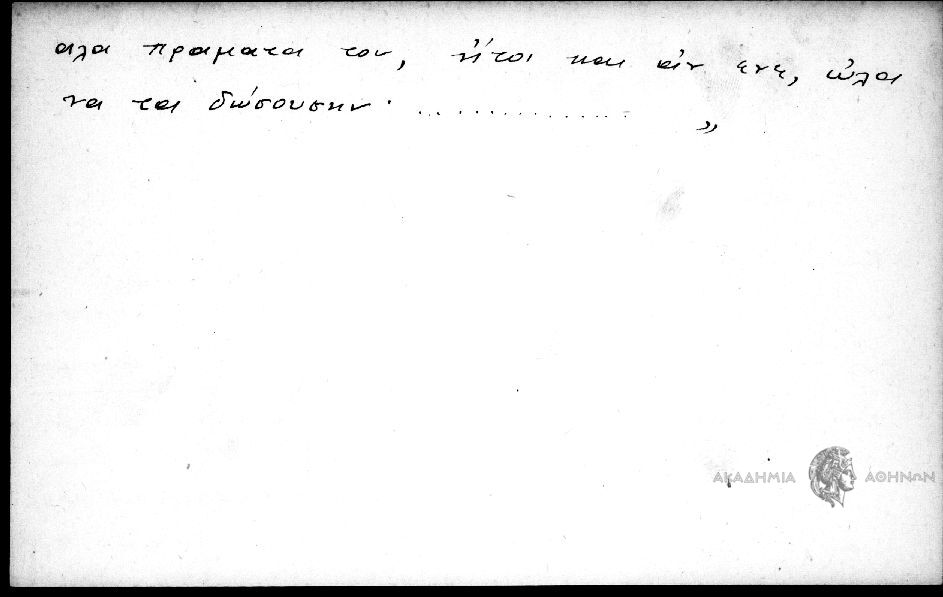 αλα πραματα του, ήτοι και αν ενε, ώλα
να τα δώσουσην· ................ »
ΑΚΑΔΗΜΙΑ ΑΘΗΝΩΝ